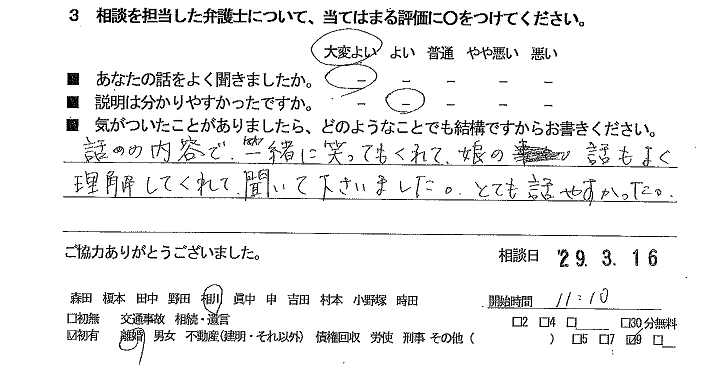 3 相談を担当した弁護士について、当てはまる評価に〇をつけてください。
大変よい よい 普通 やや悪い 悪い
■ あなたの話をよく聞きましたか。 － － － － －
■ 説明は分かりやすかったですか。 － － － － －
■ 気がついたことがありましたら、どのようなことでも結構ですからお書きください。
話の内容で、一緒に笑ってもくれて、娘の 話もよく
理解してくれて、聞いて下さいました。とても話やすかった。
ご協力ありがとうございました。 相談日 '29.3.16
森田 榎本 田中 野田 相川 眞中 申 吉田 村本 小野塚 時田 開始時間 11:10
□初無 交通事故 相続・遺言 □2 □4 □ ☑30分無料
☑初有 離婚 男女 不動産(建明・それ以外) 債権回収 労使 刑事 その他( ) □5 □7 ☑9 □